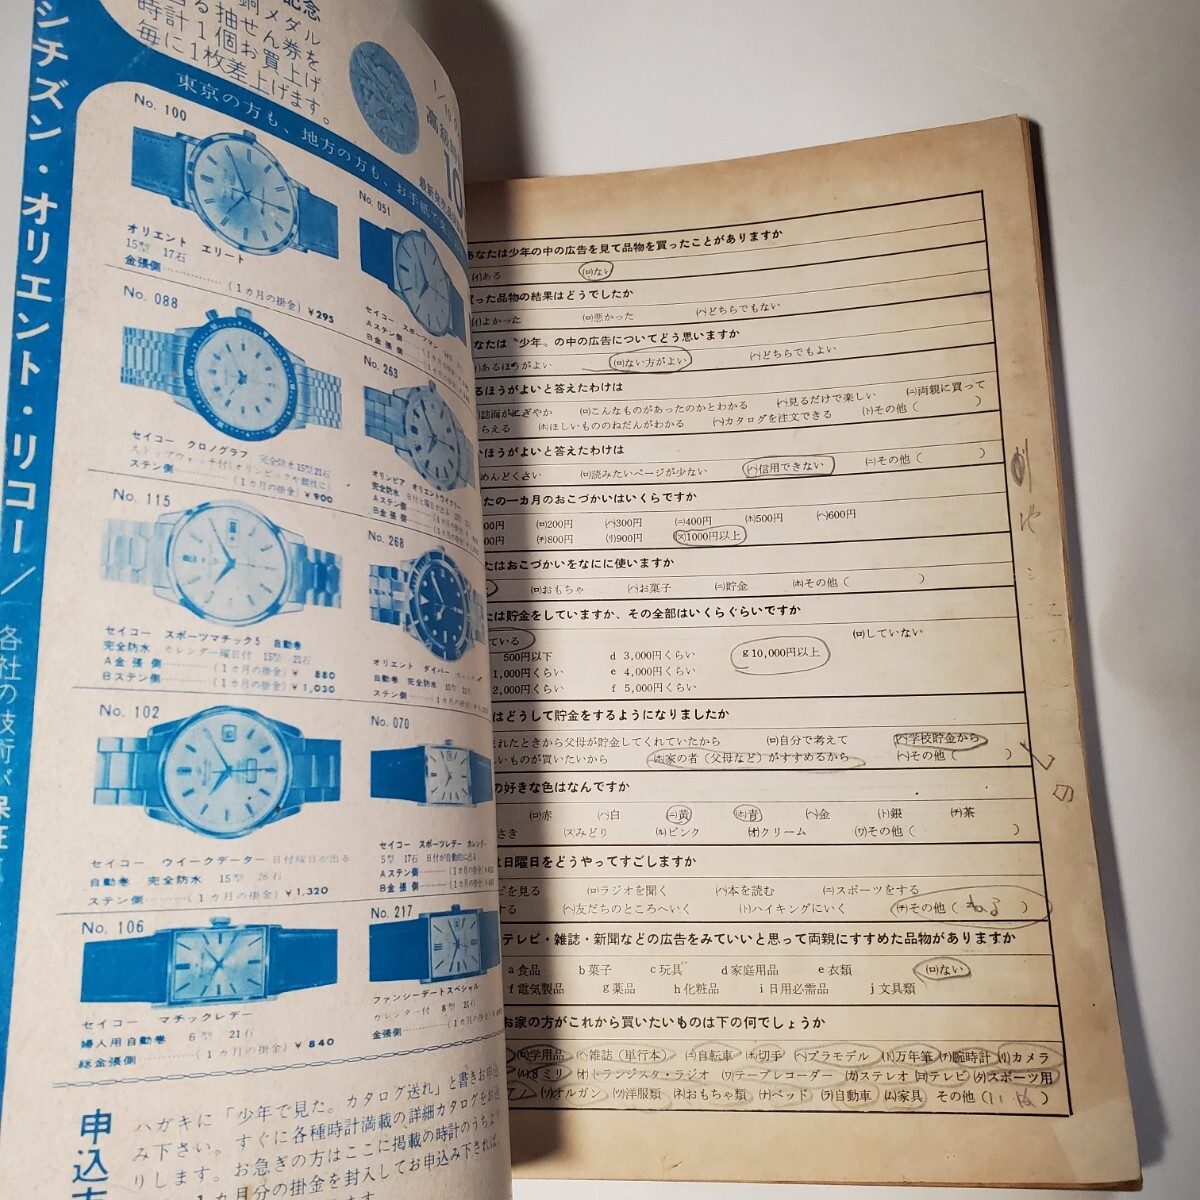 シチズン・オリエント・リコー/各社の技術が保証
記念
銅メダル
る抽せん券を
時計1個お買上げ
毎に1枚差上げます。
東京の方も、地方の方も、お手紙で
10
No. 100
オリエント エリート
15型 17石
金張側…………(1カ月の掛金)¥295
No. 051
セイコー スポーツマン
Aステン側
B金張側
No. 088
セイコー クロノグラフ 完全防水15型21石
ストップウォッチ付(オリンピックや競技に)
ステン側…………(1カ月の掛金)¥900
No. 263
オリンピア オリエントウイクリー
完全防水 日付と曜日が出る
Aステン側
B金張側
No. 115
セイコー スポーツマチック5 自動巻
完全防水 カレンダー曜日付 15型 21石
A金張側…………(1カ月の掛金)¥ 880
Bステン側…………(1カ月の掛金)¥1,030
No. 268
オリエント ダイバー
自動巻 完全防水 15型 21石
ステン側…………(1カ月の掛金)
No. 102
セイコー ウイークデーター 日付曜日が出る
自動巻 完全防水 15型 26石
ステン側…………(1カ月の掛金)¥1,320
No. 070
セイコー スポーツレデー カレンダー
5型 17石 日付が自動的に出る
Aステン側…………(1カ月の掛金)
B金張側…………(1カ月の掛金)
No. 106
セイコー マチックレデー
婦人用自動巻 6型 21石
総金張側…………(1カ月の掛金)¥840
No. 217
ファンシーデートスペシャル
カレンダー付 8型 21石
金張側…………(1カ月の掛金)
申込方
ハガキに「少年で見た。カタログ送れ」と書きお申込
み下さい。すぐに各種時計満載の詳細カタログをお送
りします。お急ぎの方はここに掲載の時計のうちより
1カ月分の掛金を封入してお申込み下されば、
あなたは少年の中の広告を見て品物を買ったことがありますか
(イ)ある (ロ)ない
買った品物の結果はどうでしたか
(イ)よかった (ロ)悪かった (ハ)どちらでもない
なたは〝少年〟の中の広告についてどう思いますか
(イ)あるほうがよい (ロ)ない方がよい (ハ)どちらでもよい
るほうがよいと答えたわけは
誌面がにぎやか (ロ)こんなものがあったのかとわかる (ハ)見るだけで楽しい (ニ)両親に買って
らえる (ホ)ほしいもののねだんがわかる (ヘ)カタログを注文できる (ト)その他( )
いほうがよいと答えたわけは
めんどくさい (ロ)読みたいページが少ない (ハ)信用できない (ニ)その他( )
たの一カ月のおこづかいはいくらですか
00円 (ロ)200円 (ハ)300円 (ニ)400円 (ホ)500円 (ヘ)600円
00円 (チ)800円 (リ)900円 (ヌ)1000円以上
たはおこづかいをなにに使いますか
(ロ)おもちゃ (ハ)お菓子 (ニ)貯金 (ホ)その他( )
たは貯金をしていますか、その全部はいくらぐらいですか
ている (ロ)していない
500円以下 d 3,000円くらい g 10,000円以上
1,000円くらい e 4,000円くらい
2,000円くらい f 5,000円くらい
はどうして貯金をするようになりましたか
まれたときから父母が貯金してくれていたから (ロ)自分で考えて (ハ)学校貯金から
しいものが買いたいから (ホ)家の者(父母など)がすすめるから (ヘ)その他( )
の好きな色はなんですか
(ロ)赤 (ハ)白 (ニ)黄 (ホ)青 (ヘ)金 (ト)銀 (チ)茶
さき (ヌ)みどり (ル)ピンク (オ)クリーム (ワ)その他( )
は日曜日をどうやってすごしますか
ビを見る (ロ)ラジオを聞く (ハ)本を読む (ニ)スポーツをする
する (ヘ)友だちのところへいく (ト)ハイキングにいく (チ)その他( ねる )
テレビ・雑誌・新聞などの広告をみていいと思って両親にすすめた品物がありますか
a 食品 b 菓子 c 玩具 d 家庭用品 e 衣類 (ロ)ない
f 電気製品 g 薬品 h 化粧品 i 日用必需品 j 文具類
お家の方がこれから買いたいものは下の何でしょうか
(ロ)学用品 (ハ)雑誌(単行本) (ニ)自転車 (ホ)切手 (ヘ)プラモデル (ト)万年筆 (チ)腕時計 (リ)カメラ
(ル)8ミリ (オ)トランジスタ・ラジオ (ワ)テープレコーダー (カ)ステレオ (ヨ)テレビ (タ)スポーツ用
(ソ)オルガン (ツ)洋服類 (ネ)おもちゃ類 (ナ)ベッド (ラ)自動車 (ム)家具 その他( )